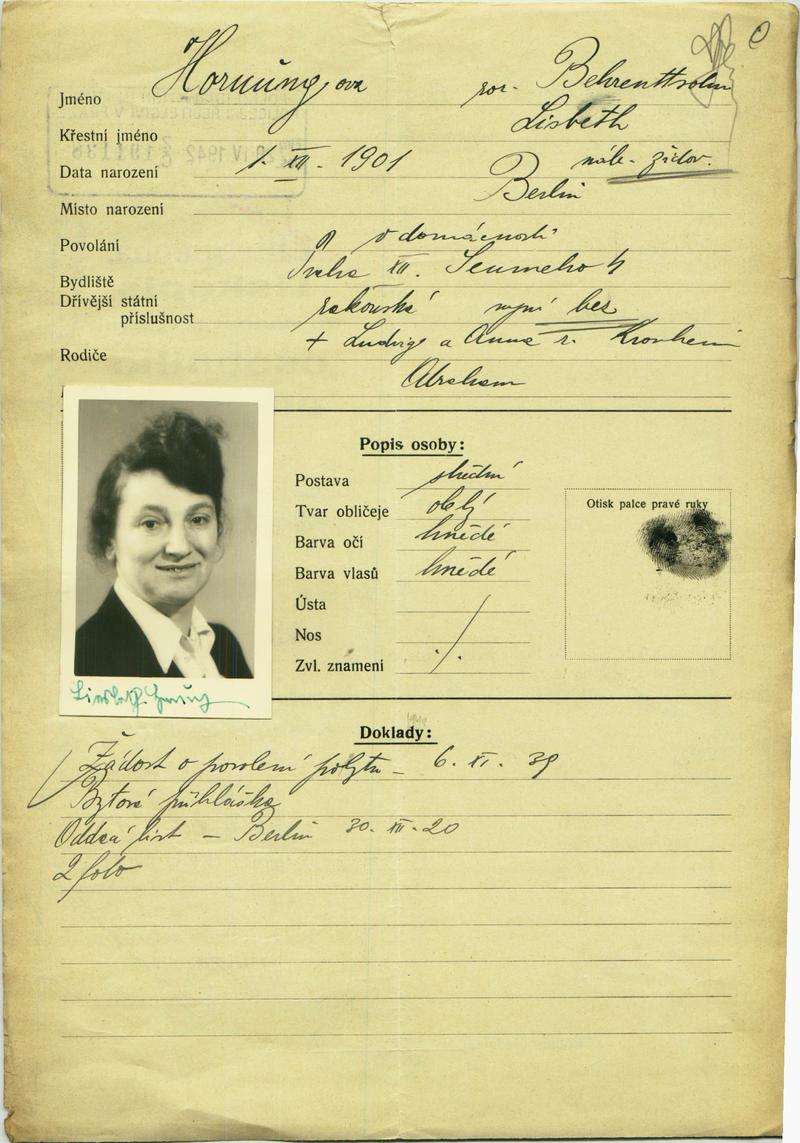 Jméno Hornungova roz. Behrenttsohn
Křestní jméno Lisbeth
Data narození 1. XII. 1901 náb. židov.
Místo narození Berlin
Povolání v domácnosti
Bydliště Praha XII. Seumeho 4
Dřívější státní příslušnost rakouská nyní bez
Rodiče + Ludvig a Anna r. Kronheim
Abraham
Popis osoby:
Postava střední
Tvar obličeje oblý
Barva očí hnědé
Barva vlasů hnědé
Ústa
Nos
Zvl. znamení
Otisk palce pravé ruky
Doklady:
Žádost o povolení pobytu – 6. XI. 39
Bytová přihláška
Oddací list – Berlin 30. XII. 20
2 foto